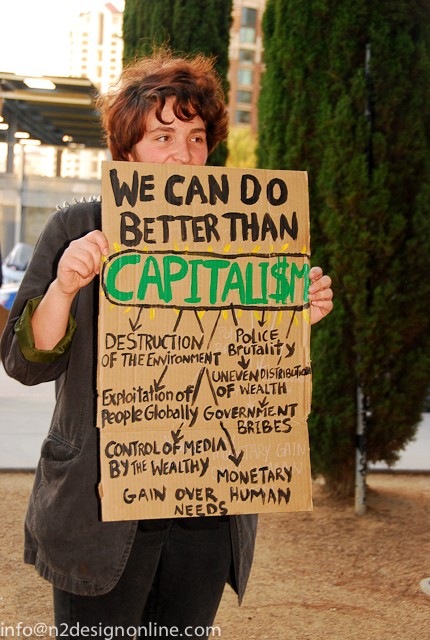 WE CAN DO
BETTER THAN
CAPITALI$M
DESTRUCTION
OF THE ENVIRONMENT
POLICE
BRUTALITY
Exploitation of
People Globally
UNEVEN DISTRIBUTION
OF WEALTH
GOVERNMENT
BRIBES
CONTROL OF MEDIA
BY THE WEALTHY
MONETARY
GAIN OVER HUMAN
NEEDS
info@n2designonline.com